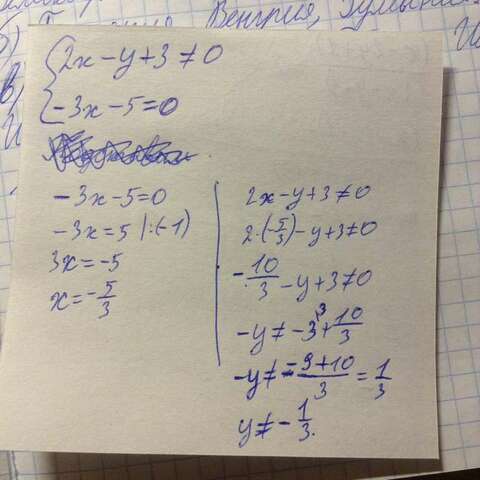 Венгрия,
{2x - y + 3 ≠ 0
-3x - 5 = 0
-3x - 5 = 0
-3x = 5 |:(-1)
3x = -5
x = -5/3
2x - y + 3 ≠ 0
2·(-5/3) - y + 3 ≠ 0
-10/3 - y + 3 ≠ 0
-y ≠ -3³ + 10/3
-y ≠ -9+10/3 = 1/3
y ≠ -1/3.